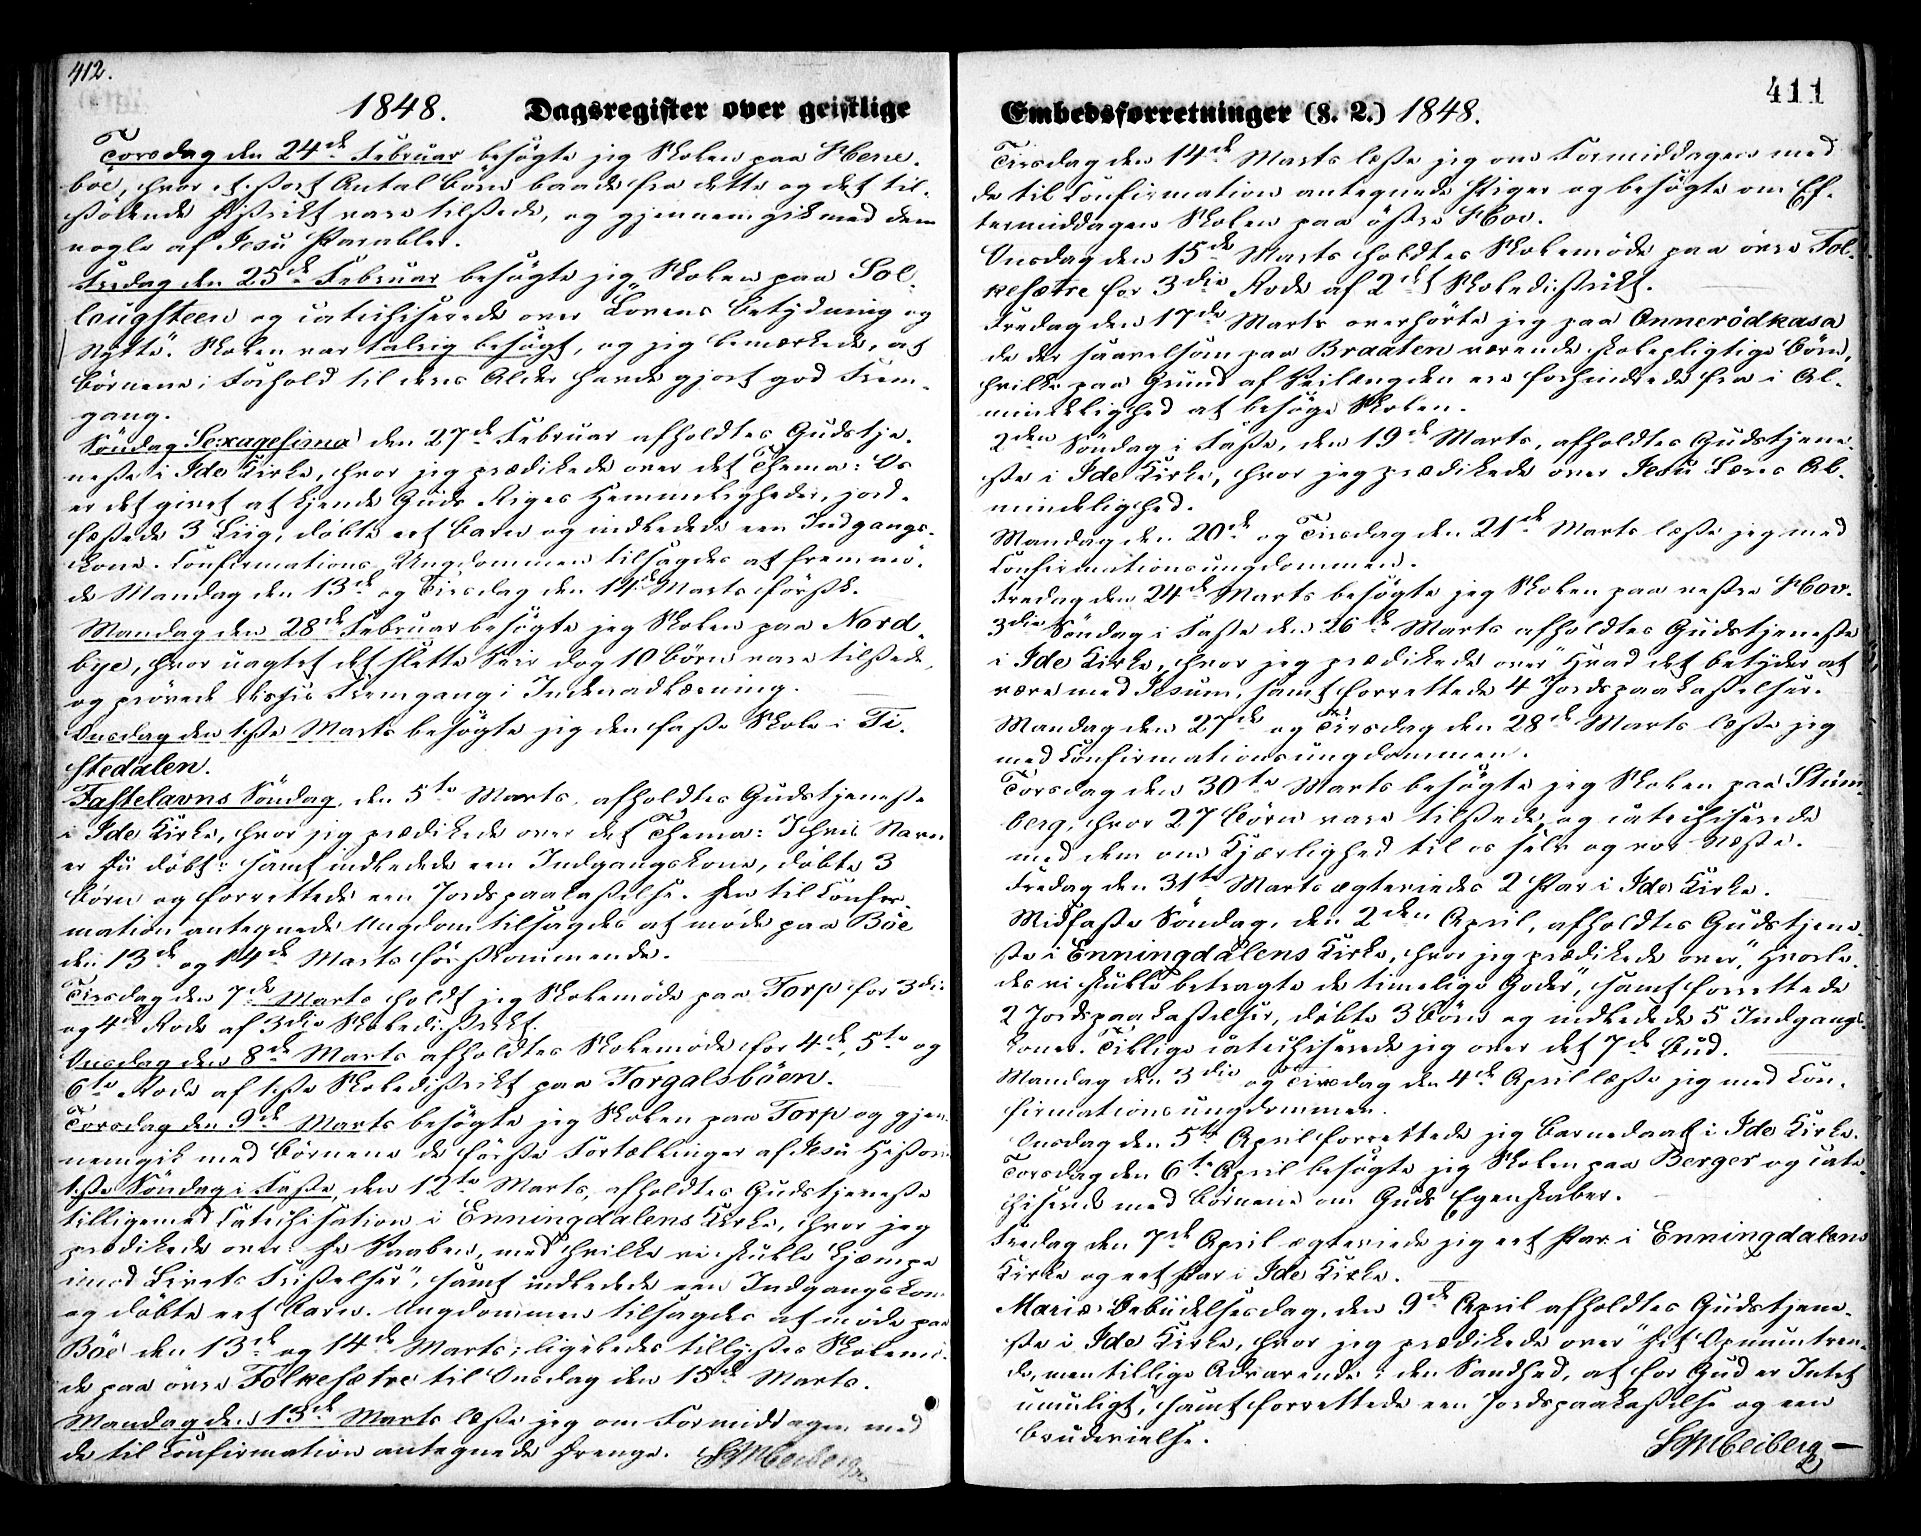 412.
1848. Dagsregister over geistlige
Torsdag den 24de Februar besögte jeg Skolen paa Hene-
böe, hvor et stort Antal Börn baade fra dette og det til-
stödende Distrikt vare tilstede, og gjennemgik med dem
nogle af Jesu Parabler.
Fredag den 25de Februar besögte jeg Skolen paa Sol-
laugsteen og catechiserede over "Lovens Betydning og
Nytte". Skolen var talrig besögt, og jeg bemærkede, at
Börnene i Forhold til deres Alder havde gjort god Frem-
gang.
Söndag Sexagesima den 27de Februar afholdtes Gudstje-
neste i Ide Kirke, hvor jeg prædikede over det Thema: Os
er det givet at kjende Guds Riges Hemmeligheder, jord-
fæstede 3 Liig, döbte eet Barn og indledede een Indgangs-
kone. Confirmations Ungdommen tilsagdes at fremmö-
de Mandag den 13de og Tirsdag den 14de Marts förstk.
Mandag den 28de Februar besögte jeg Skolen paa Nord-
bye, hvor uagtet det slette Veir dog 10 Börn vare tilstede,
og prövede disses Fremgang i Indenadlæsning.
Onsdag den 1ste Marts besögte jeg den faste Skole i Ti-
stedalen.
Fastelavns Söndag, den 5te Marts, afholdtes Gudstjeneste
i Ide Kirke, hvor jeg prædikede over det Thema: I hvis Navn
er du döbt? samt indledede een Indgangskone, döbte 3
Börn og forrettede een Jordspaakastelse. Den til Confir-
mation antegnede Ungdom tilsagdes at möde paa Böe
den 13de og 14de Marts förstkommende.
Tirsdag den 7de Marts holdt jeg Skolemöde paa Torp for 3die
og 4de Rode af 3die Skoledistrikt.
Onsdag den 8de Marts afholdtes Skolemöde for 4de, 5te og
6te Rode af 1ste Skoledistrikt paa Torgalsböen.
Torsdag den 9de Marts besögte jeg Skolen paa Torp og gjen-
nemgik med Börnene de förste Fortællinger af Jesu Historie
1ste Söndag i Faste, den 12te Marts, afholdtes Gudstjeneste
tilligemed Catechisation i Enningdalens Kirke, hvor jeg
prædikede over: De Vaaben, med hvilke vi skulle kjæmpe
imod Livets Fristelser", samt indledede een Indgangskone
og döbte eet Barn. Ungdommen tilsagdes at möde paa
Böe den 13de og 14de Marts; ligeledes tillystes Skolemö-
de paa övre Folkesætre til Onsdag den 15de Marts.
Mandag den 13de Marts læste jeg om Formiddagen med
de til Confirmation antegnede Drenge. Heiberg
411
Embedsforretninger (§. 2.) 1848.
Tirsdag den 14de Marts læste jeg om Formiddagen med
de til Confirmation antegnede Piger og besögte om Ef-
termiddagen Skolen paa östre Hov.
Onsdag den 15de Marts holdtes Skolemöde paa övre Fol-
kesætre for 3die Rode af 2det Skoledistrikt.
Fredag den 17de Marts overhörte jeg paa Onnerödkasa
de der saavelsom paa Braaten værende skolepligtige Börn,
hvilke paa Grund af Veilængden ere forhindrede fra i Al-
mindelighed at besöge Skolen.
2den Söndag i Faste, den 19de Marts, afholdtes Gudstjene-
ste i Ide Kirke, hvor jeg prædikede over Jesu Læres Al-
mindelighed.
Mandag den 20de og Tirsdag den 21de Marts læste jeg med
Confirmationsungdommen.
Fredag den 24de Marts besögte jeg Skolen paa nestre Hov.
3die Söndag i Faste den 26de Marts afholdtes Gudstjeneste
i Ide Kirke, hvor jeg prædikede over "Hvad det betyder at
være med Jesum, samt forrettede 4 Jordspaakastelser.
Mandag den 27de og Tirsdag den 28de Marts læste jeg
med Confirmationsungdommen.
Torsdag den 30te Marts besögte jeg Skolen paa Stüm-
berg, hvor 27 Börn vare tilstede, og catechiserede
med dem om Kjærlighed til os selv og vor Næste.
Fredag den 31te Marts ægteviedes 2 Par i Ide Kirke.
Midfaste Söndag, den 2den April, afholdtes Gudstjene-
ste i Enningdalens Kirke, hvor jeg prædikede over, "Hvorle-
des vi skulle betragte de timelige Goder", samt forrettede
2 Jordspaakastelser, döbte 3 Börn og indledede 5 Indgangs-
koner. Tillige catechiserede jeg over det 7de Bud.
Mandag den 3die og Tirsdag den 4de April læste jeg med Con-
firmationsungdommen.
Onsdag den 5te April forrettede jeg Barnedaab i Ide Kirke.
Torsdag den 6te April besögte jeg Skolen paa Berger og cate-
chiserede med Börnene om Guds Egenskaber.
Fredag den 7de April ægteviede jeg eet Par i Enningdalens
Kirke og eet Par i Ide Kirke.
Mariæ Bebudelsesdag, den 9de April afholdtes Gudstjene-
ste i Ide Kirke, hvor jeg prædikede over "Det Opmuntren-
de, men tillige Advarende i den Sandhed, at for Gud er Intet
umuligt", samt forrettede een Jordspaakastelse og een
Brudevielse.
Heiberg